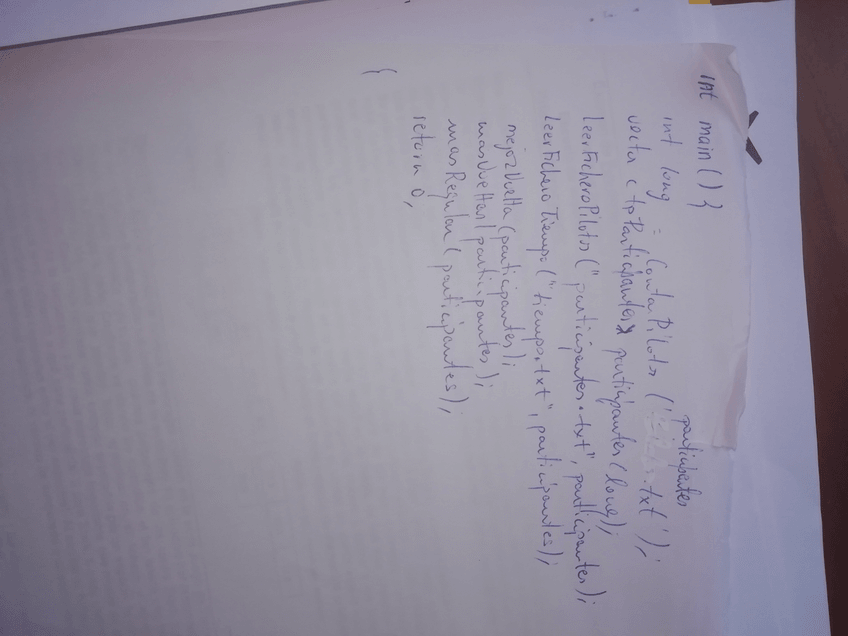 int main() }
participantes
int long = ContarPilotos (" .txt");
vector < tpParticipantes> participantes(long);
leerFicheroPilotos("participantes.txt", participantes);
leerFicheroTiempo("tiempos.txt", participantes);
mejorVuelta(participantes);
masVueltas(participantes);
masRegular(participantes);
return 0;
{